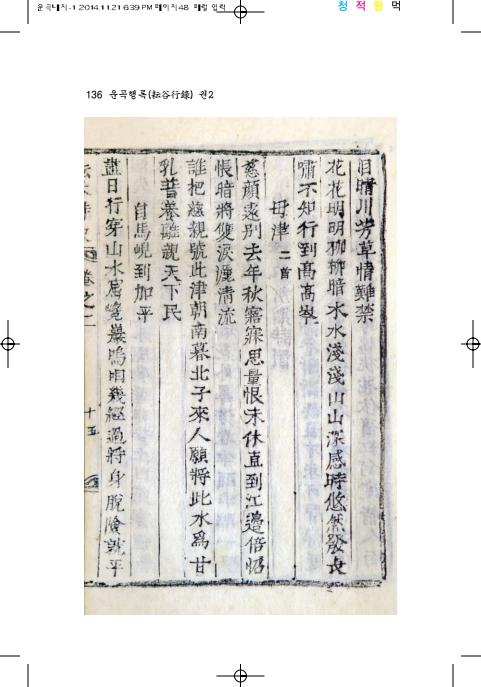 운곡행록-1 2014.11.21 6:39 PM 페이지48 매킬 입력
청 적 황 먹
136 운곡행록(耘谷行錄) 권2
汨晴川芳草情難禁
花花明明柳柳暗水水淺淺山山深感時悠然發長
嘯不知行到高高岑
母津 二首
慈顔遠別去年秋寤寐思量恨未休直到江邊倍惆
悵暗將雙淚灑淸流
誰把慈親號此津朝南暮北子來人願將此水爲甘
乳普養離親天下民
自馬峴到加平
盡日行穿山水屈嵬巖嗚咽幾經過將身脫險就平
卷之二
十五